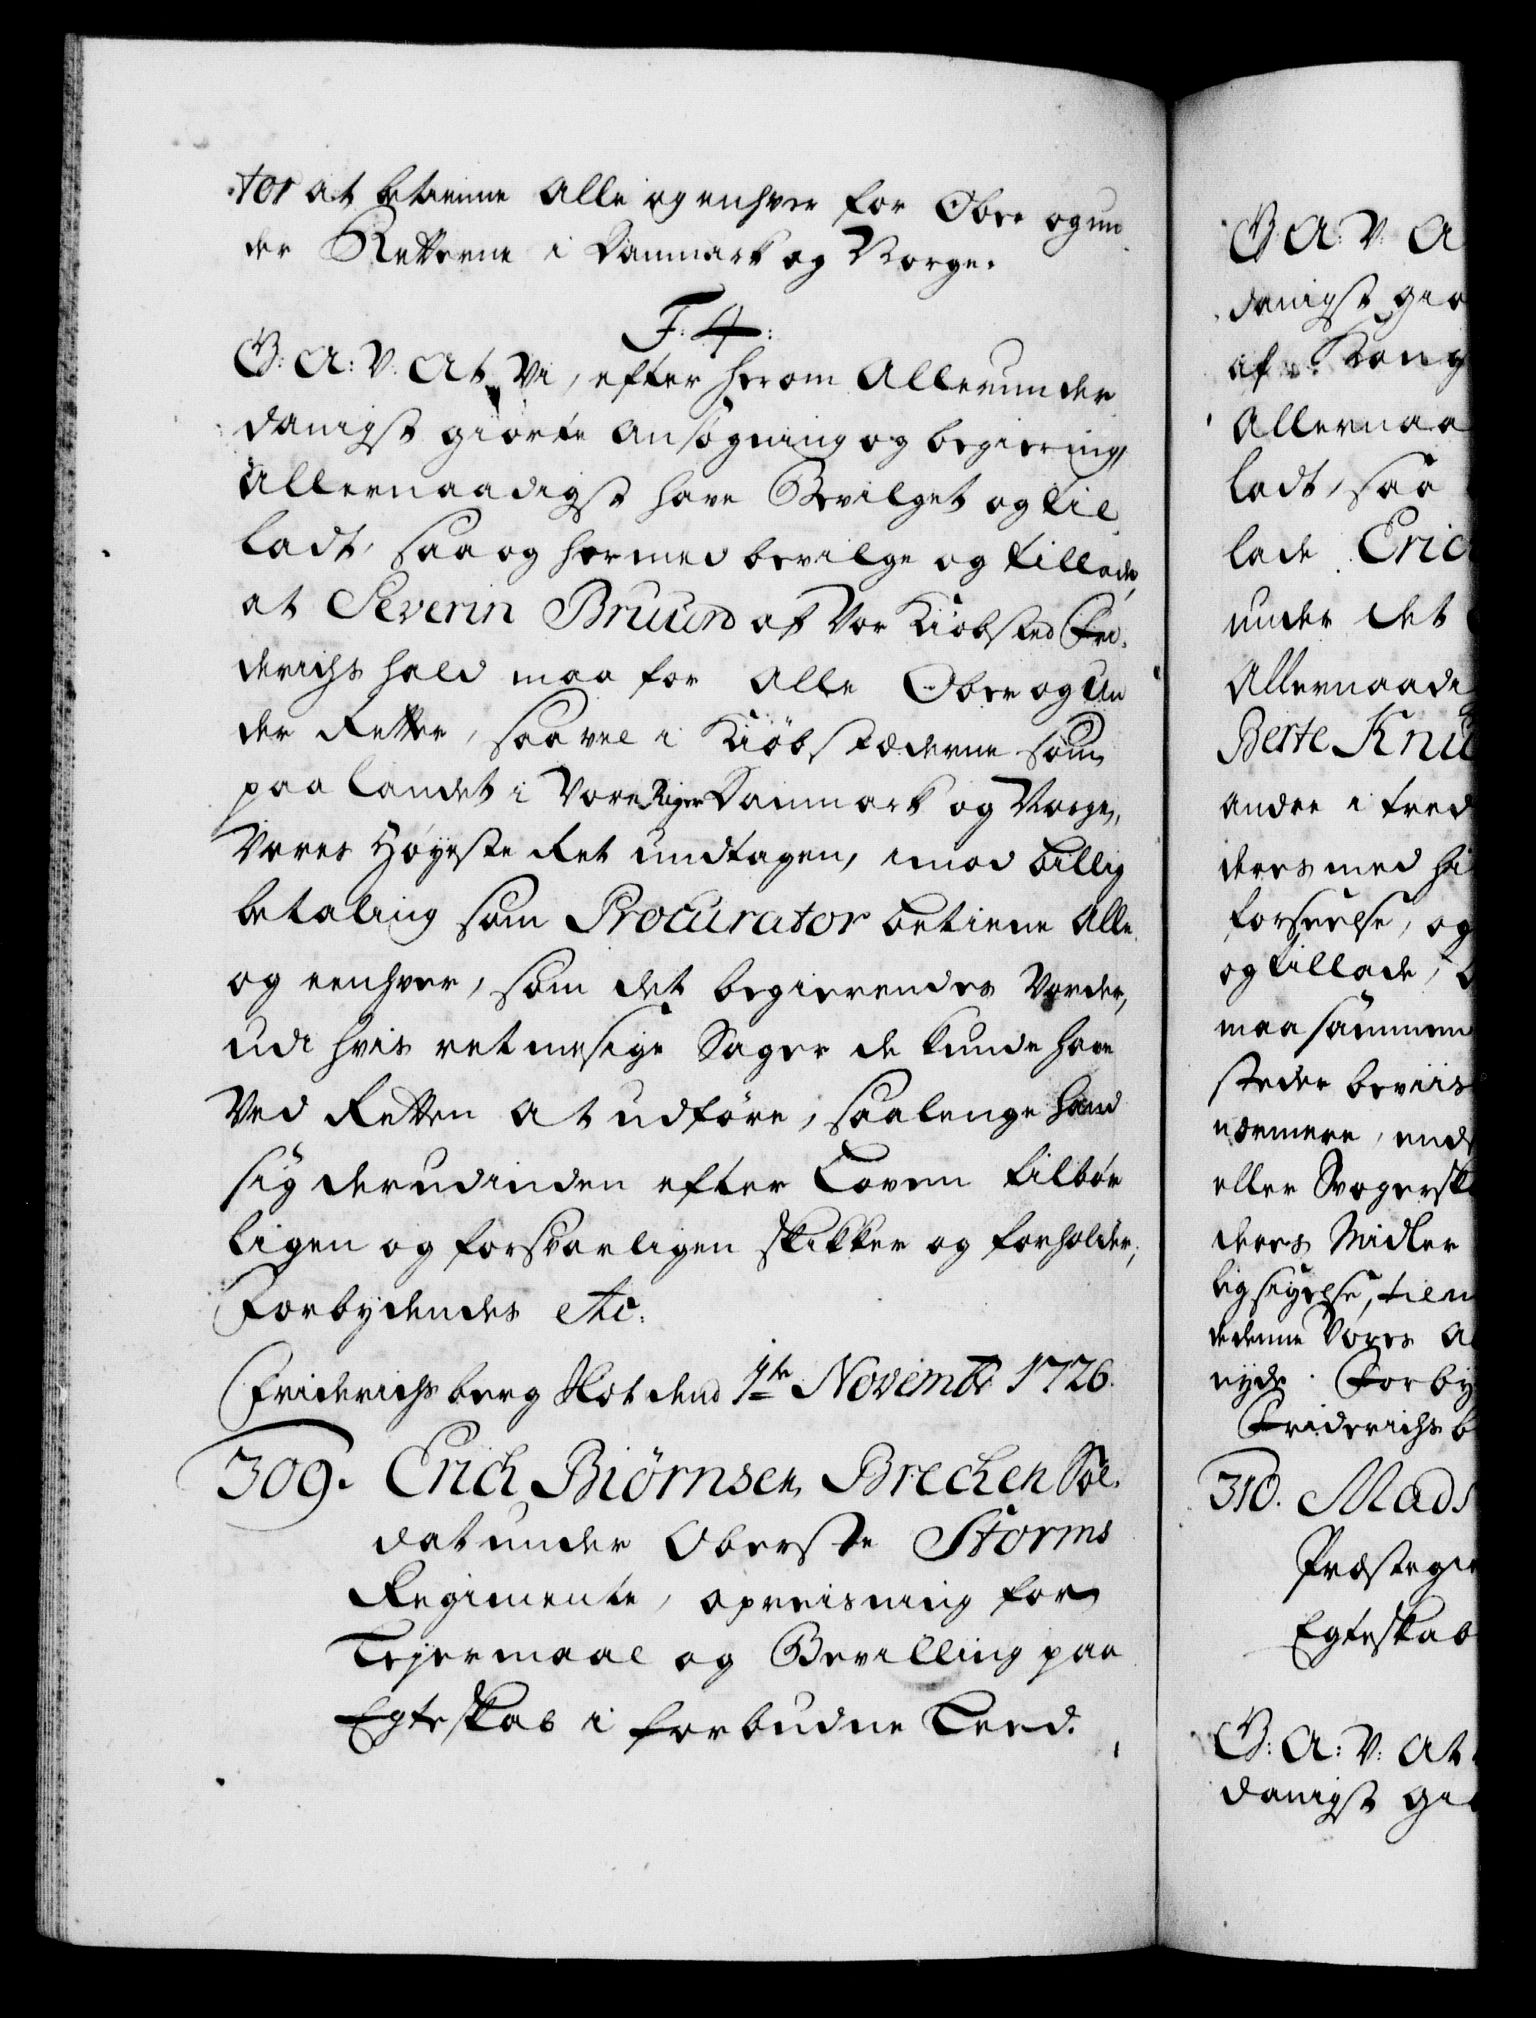 tor at betiene Alle og enhver for Ober og un
der Retterne i Danmark og Norge.
F. 4.
G: A: V. At Vi, efter herom Allerunder
danigst giorte Ansögning og begiering,
Allernaadigst have Bevilget og til
ladt, saa og hermed bevilge og tillade,
at Severin Bruun af Vor Kiöbsted Fri
derichshald maa for Alle Ober og Un
der Retter, saavel i Kiöbstæderne som
paa Landet i Vore Riger Danmark og Norge,
Vores Høyeste Ret undtagen, imod billig
betaling som Procurator betiene Alle
og eenhver, som det begierendes Vorder,
udi hvis retmesige Sager de kunde have
Ved Retten At udföre, saalenge hand
sig derudinden efter Loven tilbör
ligen og forsvarligen skikker og forholder,
Forbydendes etc:
Friderichsberg Slot dend 1te Novembr 1726.
309. Erich Biørnsen Brecken Sol
dat under Oberste Storms
Regimente, opreisning for
Lejermaal og Bevilling paa
Egteskab i forbudne Leed.
G A: V: A
danigst gio
af Kong
Allernaa
ladt, saa
lade Eric
under det
Allernaadi
Berte Knu
anden i tred
deres med hi
forseelse, og
og tillade,
maa sammen
steder beviis
nærmere, end
eller Svogersk
deres Midler
ligsigelse, til
dedenne Vores A
nyde. Forby
Friderichsb
310. Mads
Præstegi
Egteskab
G: A: V: At
danigst gi